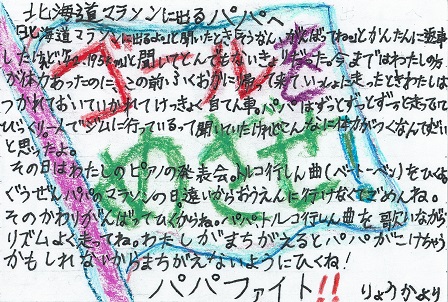 北海道マラソンに出るパパへ
北海道マラソンに出るよ」と聞いたとき「そうなん、がんばってね」とかんたんに返事
したけど「42.195km」と聞いてとんでもないきょりだった。今まではわたしのほ
が体力あったのに、この前ふくおかに帰って来ていっしょに走ったときわたしは
つかれておいていかれてけっきょく自てん車。パパはずっとずっと走ってい
ひらくり。1人でジムに行っているって聞いていたけれどこんなに体力がつくなんてすごい
と思ったよ。
その日はわたしのピアノの発表会。トルコ行しん曲(ベートーベン)をひく
ぐうぜんパパのマラソンの日。遠いからおうえんに行けなくてごめんね。
そのかわりがんばってひくからね。パパもトルコ行しん曲を歌いながら
リズムよく走ってね。わたしがまちがえるとパパがこけちゃう
かもしれないからまちがえないようにひくね!
パパファイト!!
りょうかより
ゴールを
めざせ